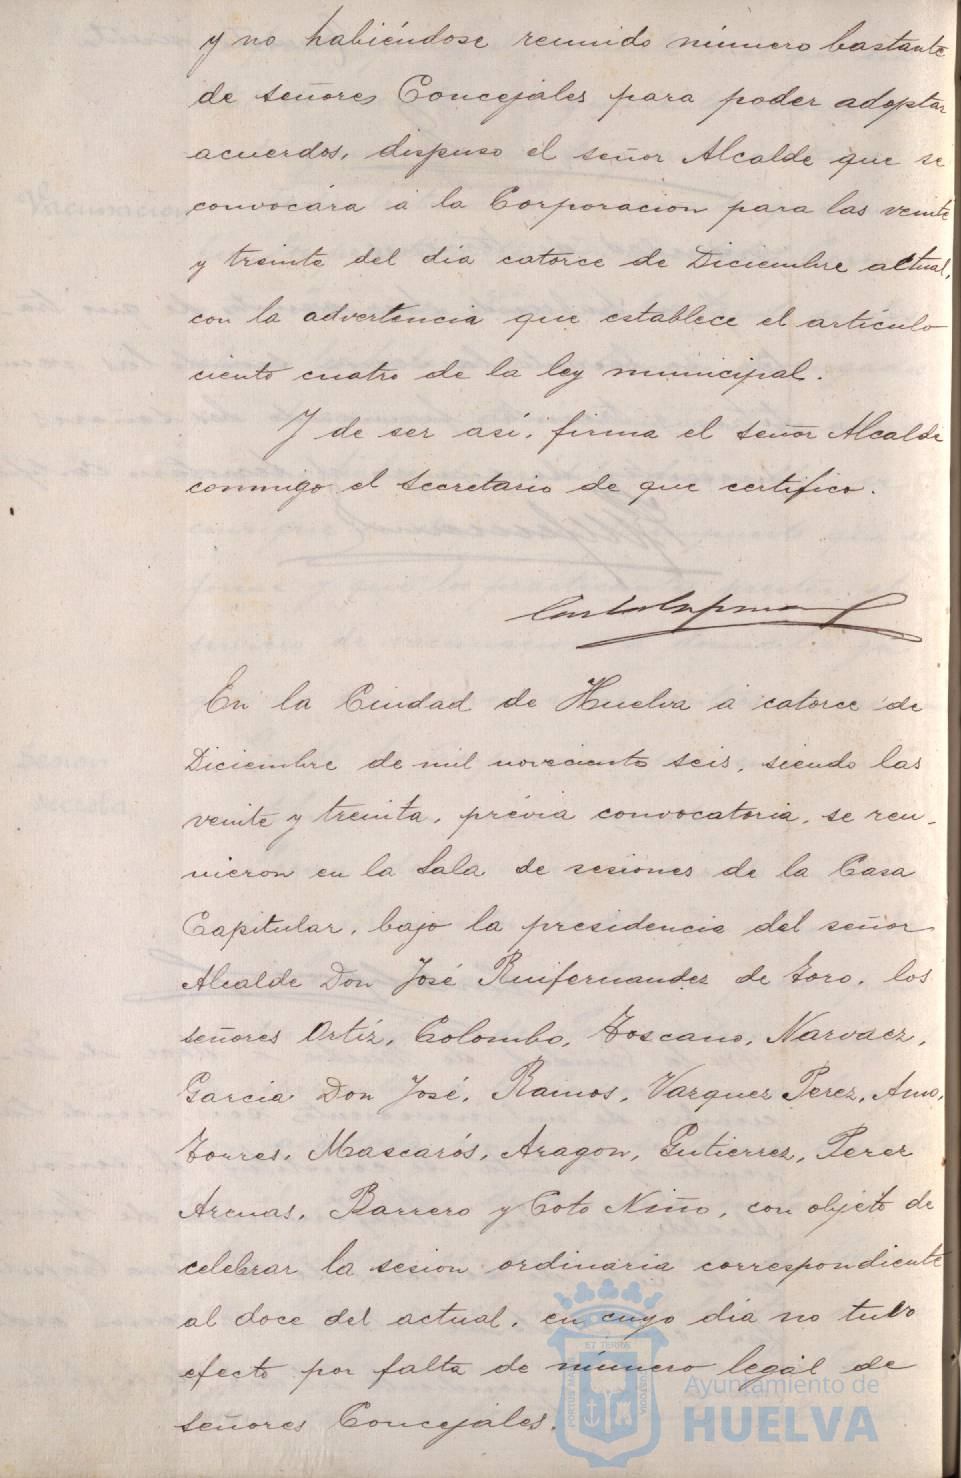 y no habiéndose reunido número bastante
de señores Concejales para poder adoptar
acuerdos, dispuso el señor Alcalde que se
convocára á la Corporacion para las veinte
y treinta del dia catorce de Diciembre actual,
con la advertencia que establece el artículo
ciento cuatro de la ley municipal.
Y de ser así, firma el señor Alcalde
conmigo el Secretario de que certifico.
En la Ciudad de Huelva á catorce de
Diciembre de mil novecientos seis, siendo las
veinte y treinta, prévia convocatoria, se reu-
nieron en la Sala de sesiones de la Casa
Capitular, bajo la presidencia del señor
Alcalde Don José Ruifernandez de Toro, los
señores Ortíz, Colombo, Toscano, Narvaez,
Garcia Don José, Ramos, Vazquez Perez, Amo,
Torres, Mascarós, Aragon, Gutierrez, Perez
Arenas, Barrero y Coto Niño, con objeto de
celebrar la sesion ordinaria correspondiente
al doce del actual, en cuyo dia no tubo
efecto por falta de número legal de
señores Concejales.
Ayuntamiento de
HUELVA